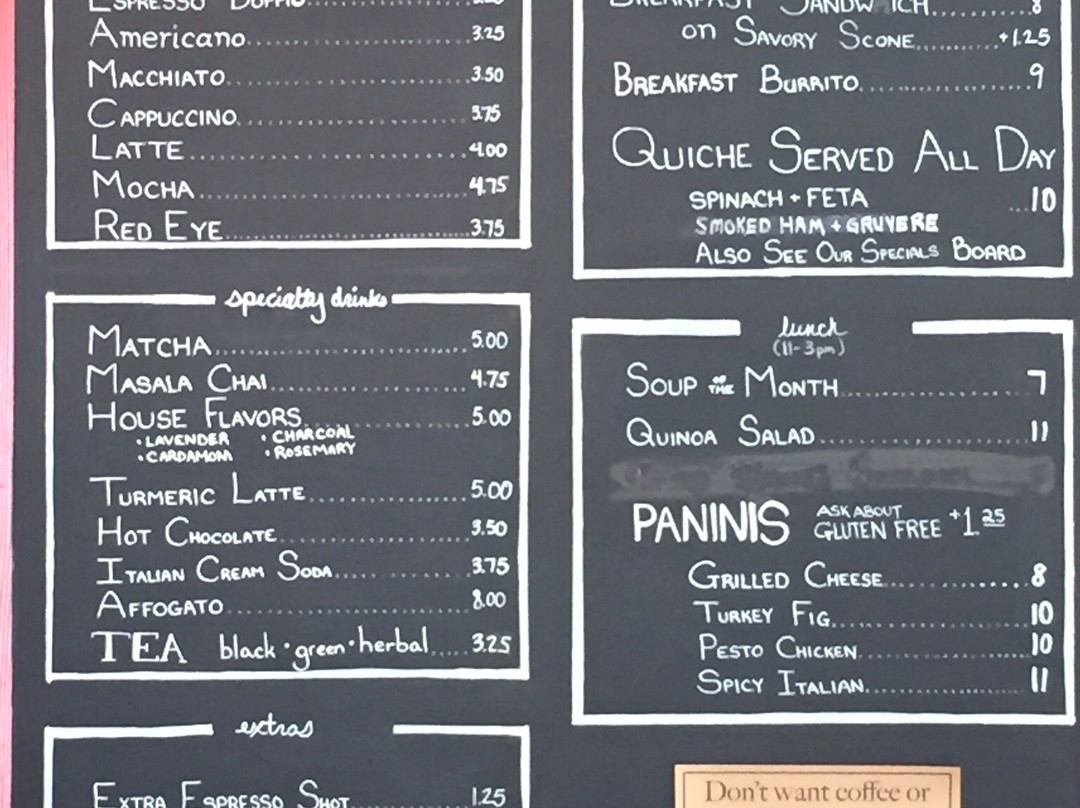 ESPRESSO DOPPIO
Americano 3.25
MACCHIATO 3.50
CAPPUCCINO 3.75
LATTE 4.00
MOCHA 4.75
RED EYE 3.75
specialty drinks
MATCHA 5.00
MASALA CHAI 4.75
HOUSE FLAVORS 5.00
• LAVENDER • CHARCOAL
• CARDAMOM • ROSEMARY
TURMERIC LATTE 5.00
HOT CHOCOLATE 3.50
ITALIAN CREAM SODA 3.75
AFFOGATO 8.00
TEA black • green • herbal 3.25
extras
EXTRA ESPRESSO SHOT 1.25
BREAKFAST SANDWICH 8
on SAVORY SCONE +1.25
BREAKFAST BURRITO 9
QUICHE SERVED ALL DAY
SPINACH + FETA 10
SMOKED HAM + GRUYERE
ALSO SEE OUR SPECIALS BOARD
lunch
(11-3pm)
SOUP OF THE MONTH 7
QUINOA SALAD 11
PANINIS ASK ABOUT
GLUTEN FREE +1.25
GRILLED CHEESE 8
TURKEY FIG 10
PESTO CHICKEN 10
SPICY ITALIAN 11
Don't want coffee or